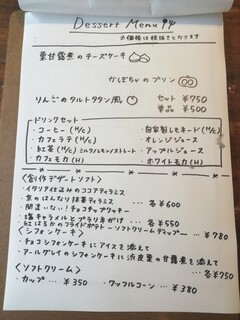 Dessert Menu
※価格は税抜きとなります
栗甘露煮のチーズケーキ
かぼちゃのプリン
りんごのタルトタタン風 セット ¥750
単品 ¥500
ドリンクセット
・コーヒー(H/c) ・自家製レモネード(H/c)
・カフェラテ(H/c) ・オレンジジュース
・紅茶(H/c) ミルク/レモン/ストレート ・アップルジュース
・カフェモカ(H) ・ホワイトモカ(H)
<創作デザートソフト>
・イタリア仕込みのココアティラミス
・京のはんなり抹茶ティラミス 各¥600
・間違いない!チョコチップクッキー
・塩キャラメルとプラリネがけ 各¥550
・紅はるかのフライドポテト-ソフトクリームディップ- … ¥780
<シフォンケーキ>
・チョコシフォンケーキにアイスを添えて
・アールグレイのシフォンケーキに渋皮栗の甘露煮を添えて
各¥750
<ソフトクリーム>
・カップ … ¥350 ・ワッフルコーン … ¥380